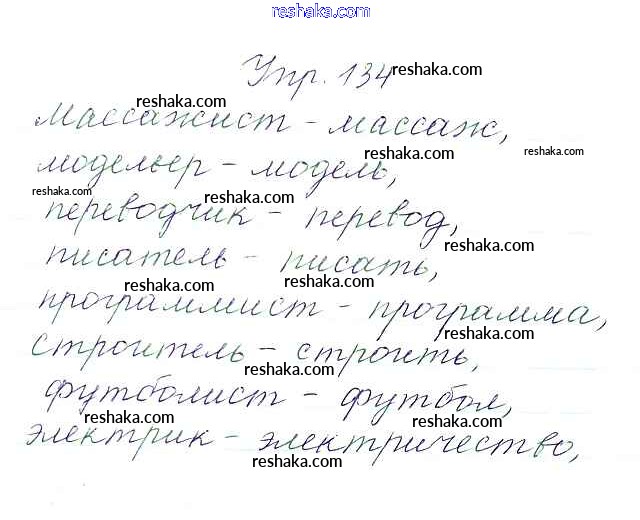 reshaka.com
Упр. 134 reshaka.com
reshaka.com
Массажист - массаж,
reshaka.com reshaka.com
модельер - модель,
reshaka.com reshaka.com
переводчик - перевод,
reshaka.com
писатель - писать,
reshaka.com reshaka.com
программист - программа,
reshaka.com
строитель - строить,
reshaka.com
футболист - футбол,
reshaka.com reshaka.com
электрик - электричество,
reshaka.com